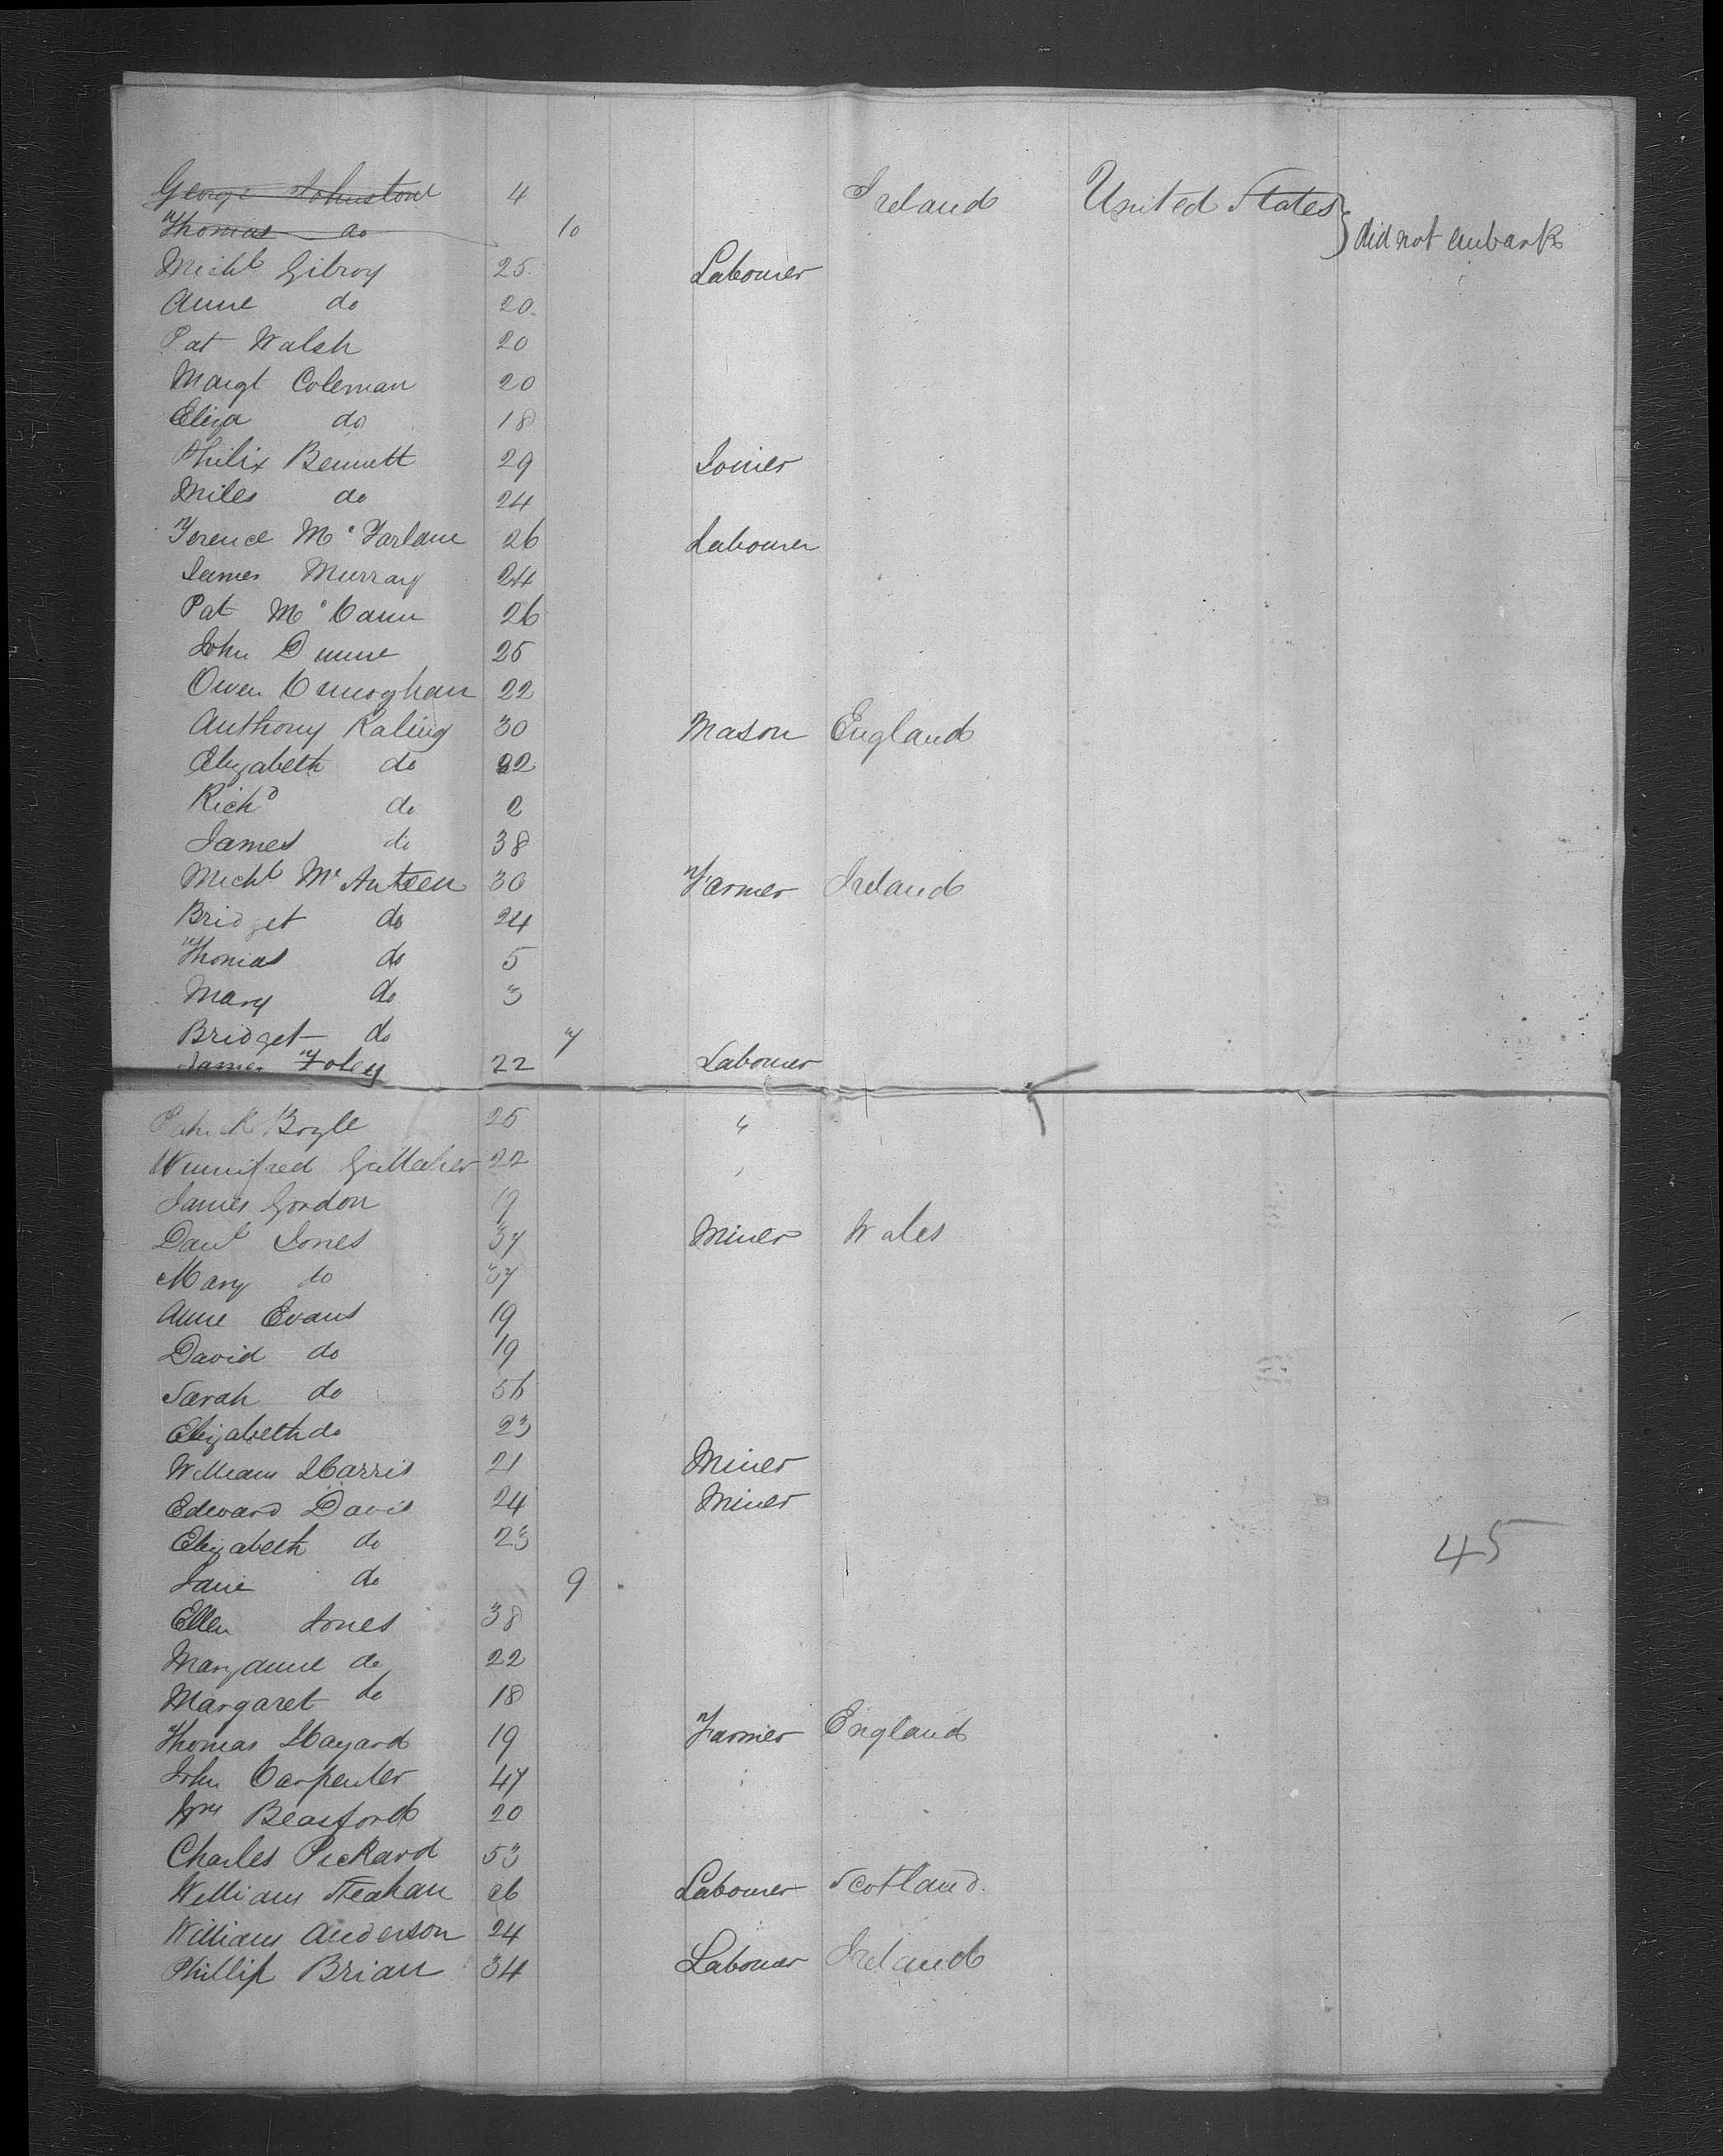 George Johnstone 4 Ireland United States
Thomas do 10 } did not embark
Michl Gilroy 25 Labourer
Anne do 20
Pat Walsh 20
Margt Coleman 20
Eliza do 18
Philix Bennett 29 Joiner
Miles do 24
Terence Mc Farlane 26 Labourer
James Murray 24
Pat Mc Cann 26
John Dunne 25
Owen 22
Anthony Kaling 30 Mason England
Elizabeth do 22
Richd do 2
James do 38
Michl Mc Anteen 30 Farmer Ireland
Bridget do 24
Thomas do 5
Mary do 3
Bridget do 7
James Foley 22 Labourer
Patrick Boyle 25 "
Winnifred Gallaher 22
James Gordon 19
Danl Jones 37 Miner Wales
Mary do 37
Anne Evans 19
David do 19
Sarah do 56
Elizabeth do 23
William Harris 21 Miner
Edward Davis 24 Miner
Elizabeth do 23
45
Jane do 9
Ellen Jones 38
Maryanne do 22
Margaret do 18
Thomas Hayard 19 Farmer England
John Carpenter 47
Wm Beasford 20
Charles Pickard 53
William Steahan 26 Labourer Scotland
William Anderson 24
Phillip Brian 34 Labourer Ireland